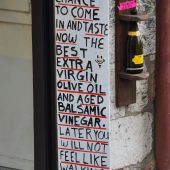 CHANCE
TO COME
IN AND TASTE
NOW THE
BEST
EXTRA
VIRGIN
OLIVE OIL
AND AGED
BALSAMIC
VINEGAR.
LATER YOU
WILL NOT
FEEL LIKE
WALKING